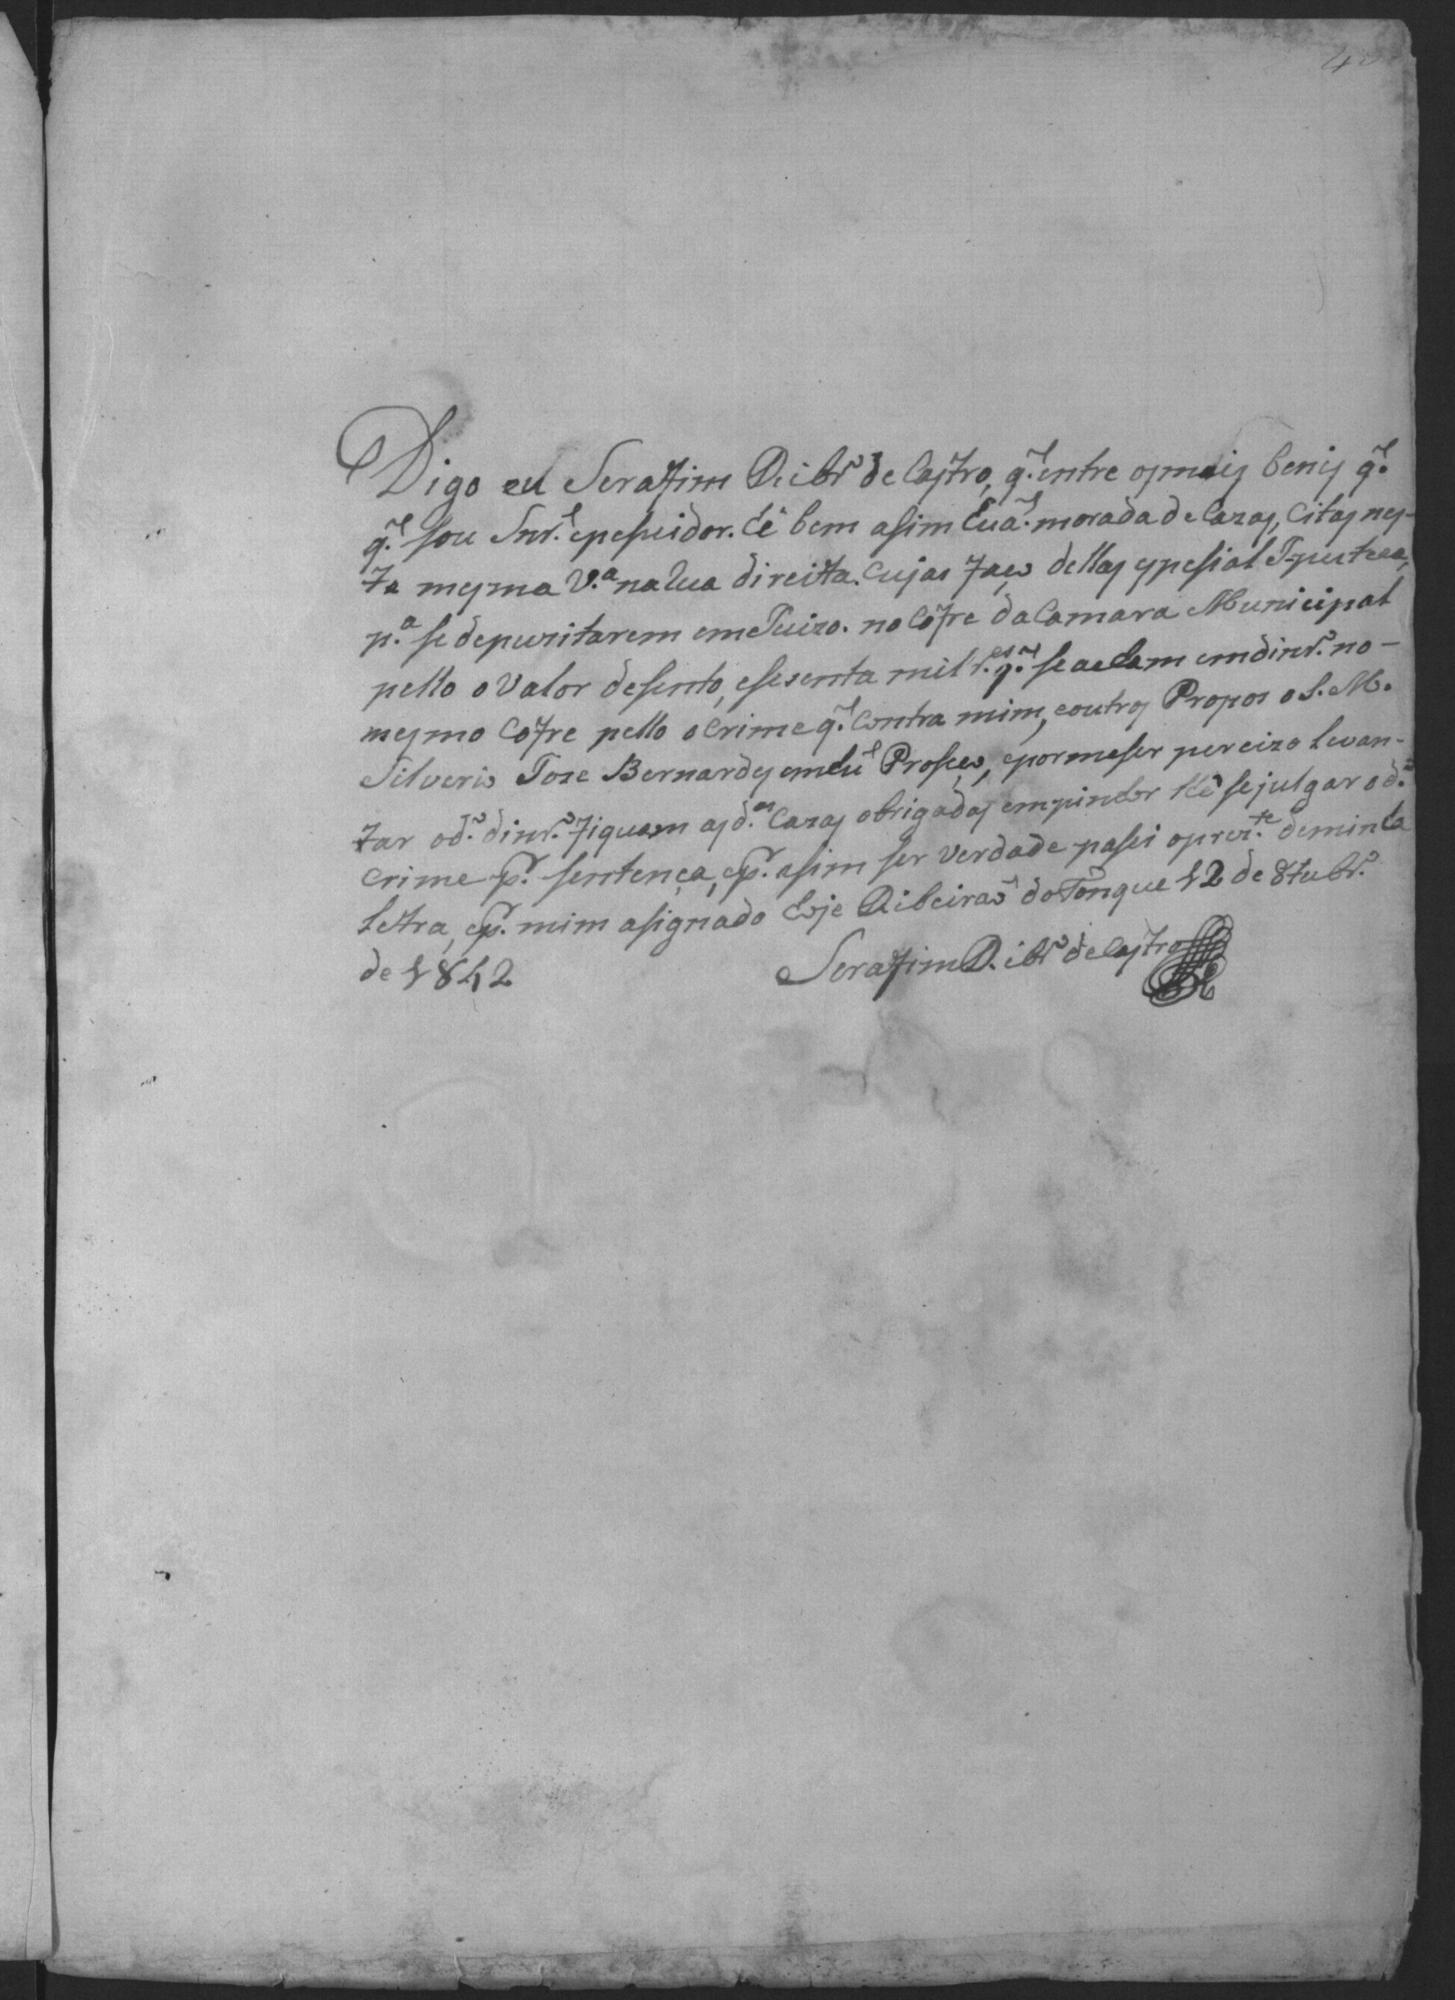 40
Digo eu Serafim Ribr.º de Castro, q.' entre os mais benis q.'
q.' sou Snr.' e pesuidor. hê bem asim huã.' morada de Cazas, Citas nes-
ta mesma V.ª na Rua direita. Cujas faço dellas espesial Iputeca,
p.ª se depuzitarem em Juizo. no Cofre da Camara Municipal
pello o Valor de sento, e sesenta mil r.es q.' se achem em dinr.º no-
mesmo Cofre pello o Crime q.' Contra mim, e outros Propos o S.M.
Silverio Joze Bernardes em hu' Proseço, e por me ser percizo Levan-
tar o d.º dinr.º fiquem as d.as Cazas obrigadas em pinhor thê se julgar o d.º
Crime p.r sentença, e p.r asim ser Verdade pasei o prez.te de minha
Letra, e p.r mim asignado hoje Ribeiraõ do Tanque 12 de 8tubr.º
de 1842
Serafim Ribr.º de Castro